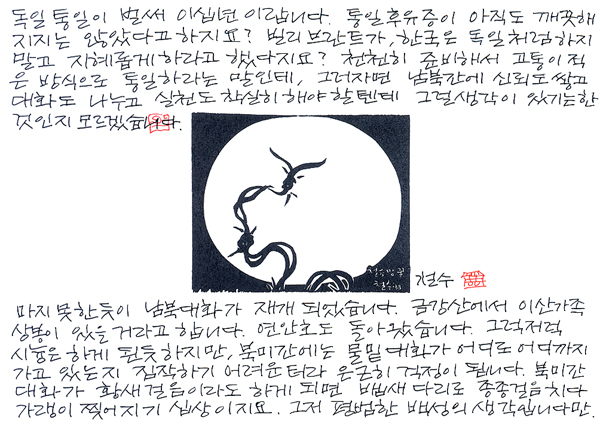 독일통일이 벌써 이십년이랍니다. 통일후유증이 아직도 깨끗해
지지는 않았다고 하지요? 빌리브란트가, 한국은 독일처럼 하지
말고 지혜롭게 하라고 했다지요? 천천히 준비해서 고통이 적
은 방식으로 통일하라는 말인데, 그러자면 남북간에 신뢰도 쌓고
대화도 나누고 실천도 착실히 해야 할텐데 그럴 생각이 있기는 한
것인지 모르겠습니다.
철수
마지 못한듯이 남북대화가 재개 되었습니다. 금강산에서 이산가족
상봉이 있을 거라고 합니다. 연안호도 돌아왔습니다. 그럭저럭
시늉은 하게 된듯하지만, 북미간에는 물밑대화가 어디로 어디까지
가고 있는지 짐작하기 어려운 터라 은근히 걱정이 됩니다. 북미간
대화가 황새걸음이라도 하게 되면 뱁새 다리로 종종걸음 치다
가랭이 찢어지기 십상이지요. 그저 평범한 백성의 생각입니다만.